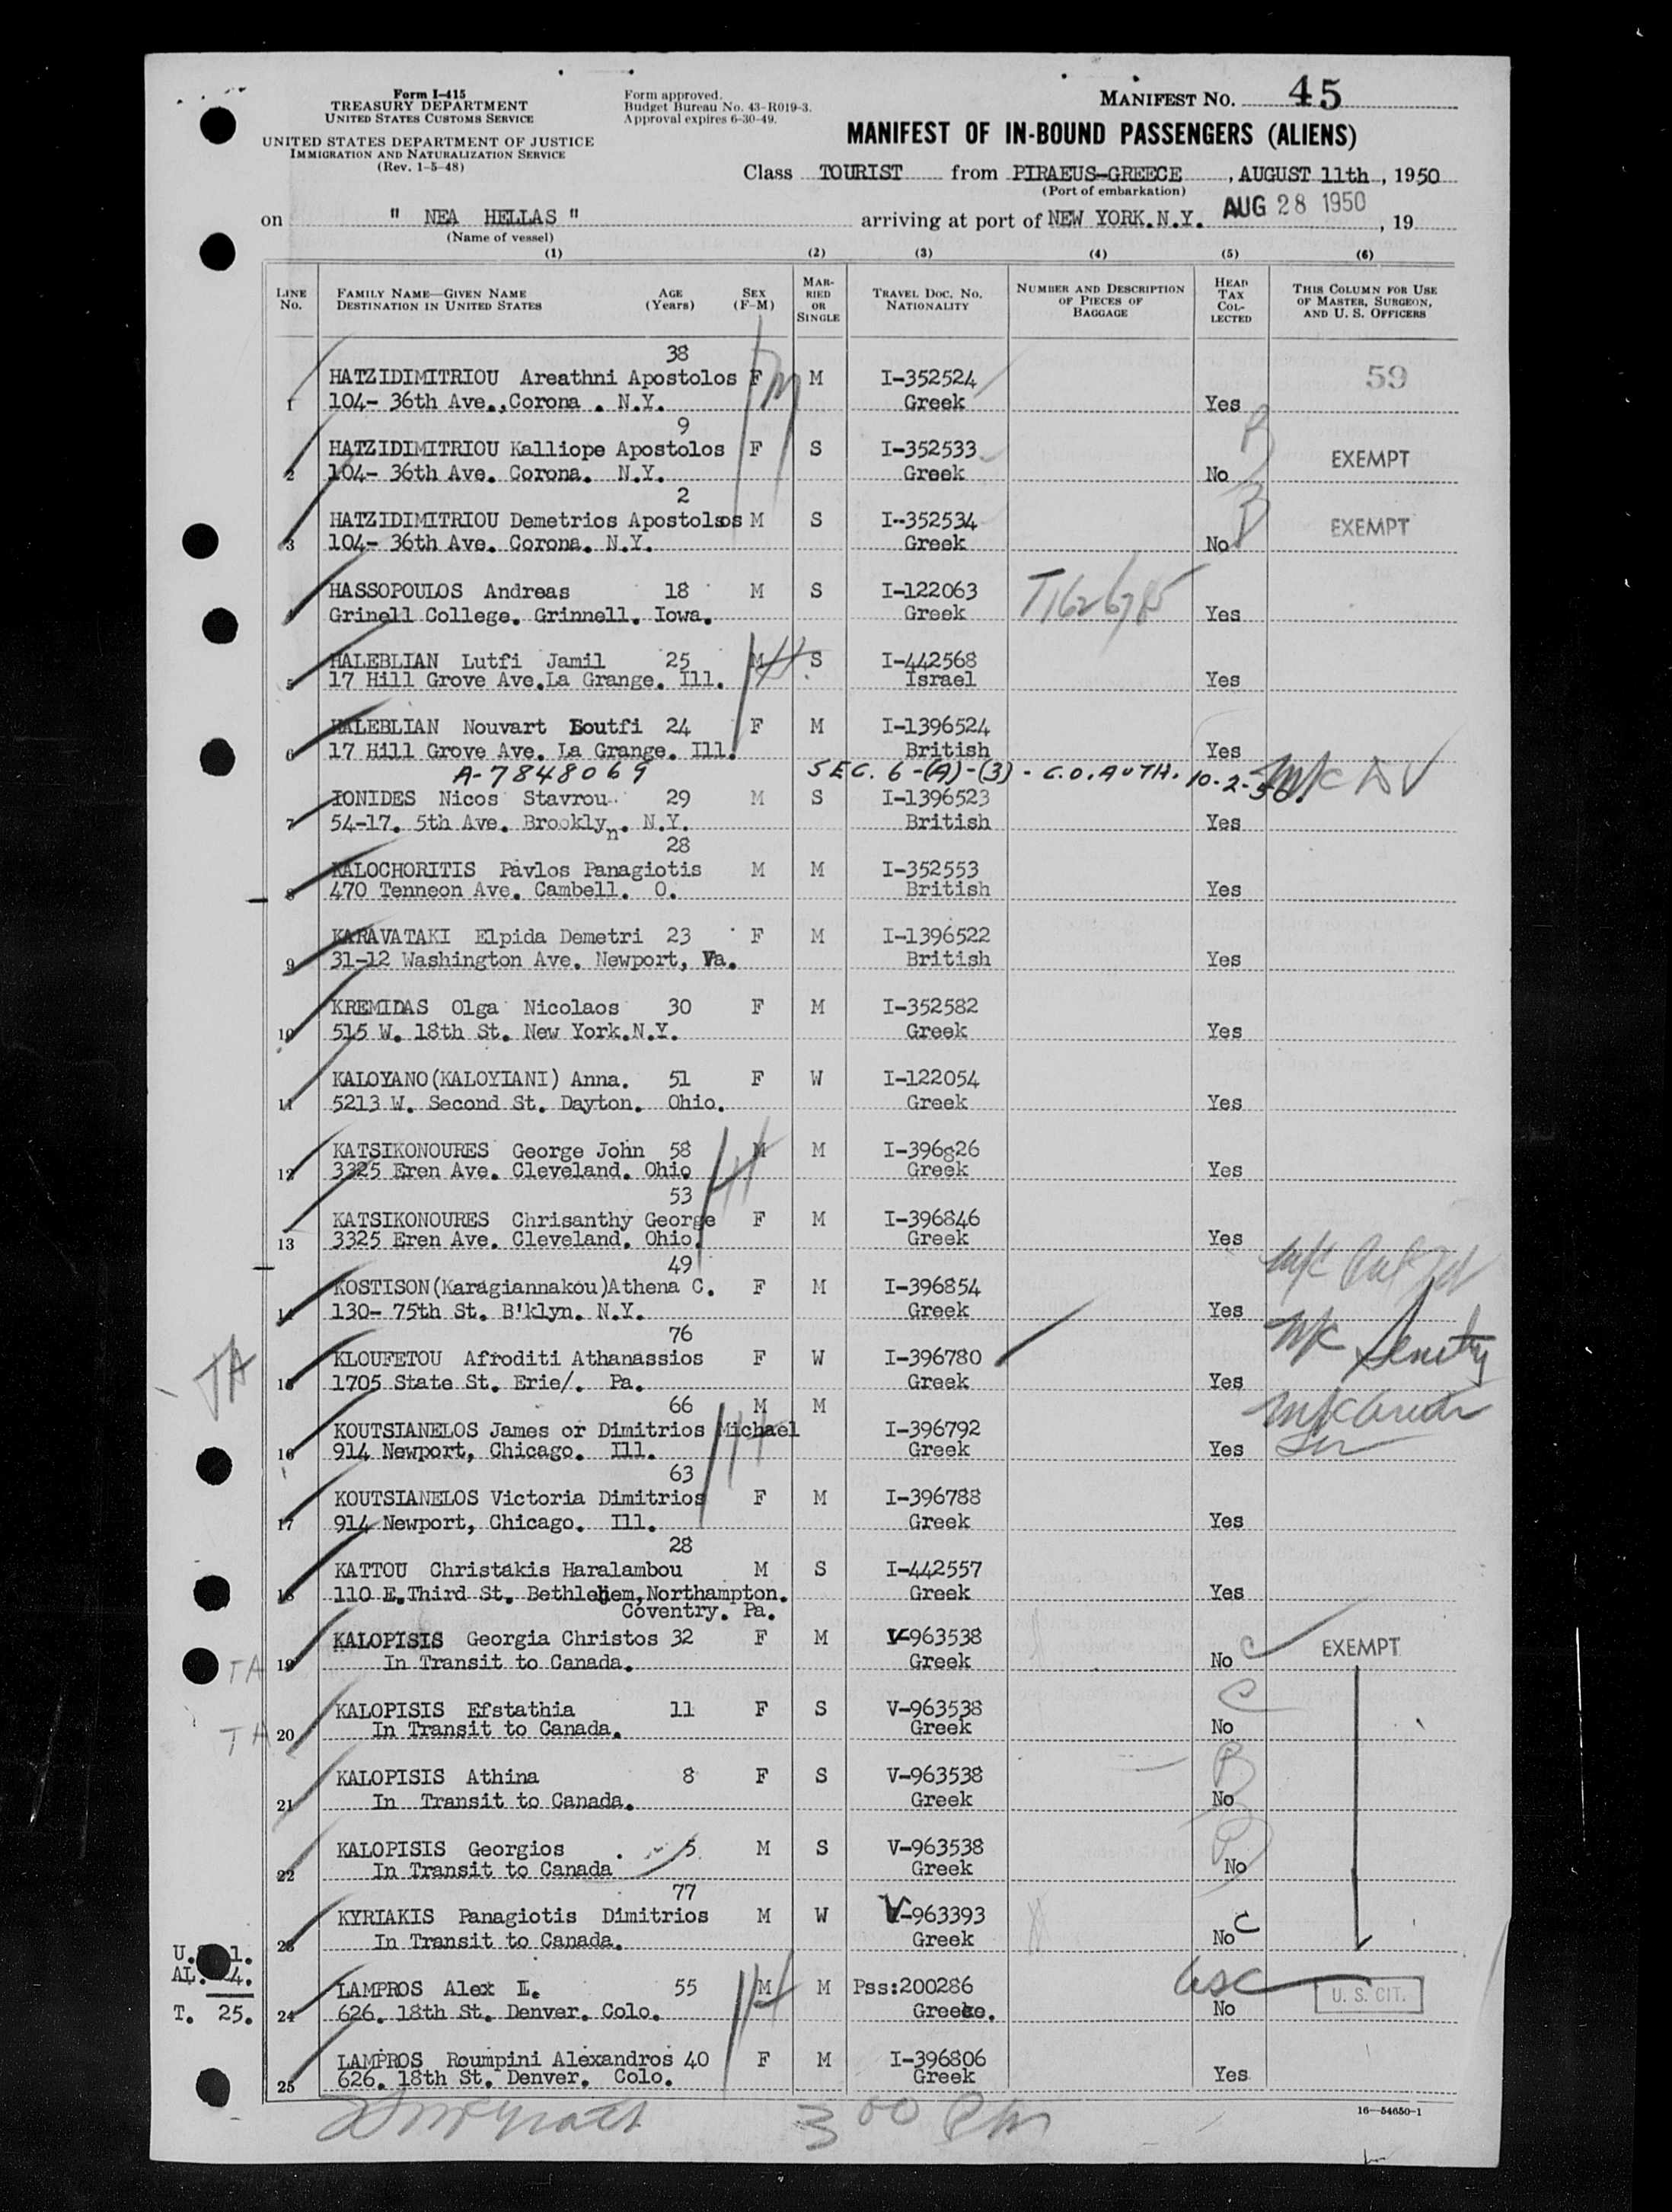 Form I-415
TREASURY DEPARTMENT
UNITED STATES CUSTOMS SERVICE
UNITED STATES DEPARTMENT OF JUSTICE
IMMIGRATION AND NATURALIZATION SERVICE
(Rev. 1-5-48)
Form approved.
Budget Bureau No. 43-R019-3.
Approval expires 6-30-49.
MANIFEST NO. 45
MANIFEST OF IN-BOUND PASSENGERS (ALIENS)
Class TOURIST from PIRAEUS-GREECE, AUGUST 11th, 1950
(Port of embarkation)
on " NEA HELLAS " arriving at port of NEW YORK.N.Y. AUG 28 1950, 19
(Name of vessel)
(1) (2) (3) (4) (5) (6)
LINE No. FAMILY NAME—GIVEN NAME DESTINATION IN UNITED STATES AGE (Years) SEX (F-M) MARRIED OR SINGLE TRAVEL DOC. NO. NATIONALITY NUMBER AND DESCRIPTION OF PIECES OF BAGGAGE HEAD TAX COLLECTED THIS COLUMN FOR USE OF MASTER, SURGEON, AND U. S. OFFICERS
38
HATZIDIMITRIOU Areathni Apostolos F M I-352524 59
1 104- 36th Ave.,Corona . N.Y. Greek Yes
9
HATZIDIMITRIOU Kalliope Apostolos F S I-352533 EXEMPT
2 104- 36th Ave. Corona. N.Y. Greek No
2
HATZIDIMITRIOU Demetrios Apostolsos M S I--352534 EXEMPT
3 104- 36th Ave. Corona. N.Y. Greek No
HASSOPOULOS Andreas 18 M S I-122063 T1626785
4 Grinell College. Grinnell. Iowa. Greek Yes
HALEBLIAN Lutfi Jamil 25 M S I-442568
5 17 Hill Grove Ave.La Grange. Ill. Israel Yes
HALEBLIAN Nouvart Loutfi 24 F M I-1396524
6 17 Hill Grove Ave. La Grange. Ill. British Yes
A-7848069 SEC. 6-(A)-(3) - C.O. AUTH. 10-2-50.
IONIDES Nicos Stavrou 29 M S I-1396523
7 54-17. 5th Ave. Brooklyn. N.Y. British Yes
28
KALOCHORITIS Pavlos Panagiotis M M I-352553
8 470 Tenneon Ave. Cambell. O. British Yes
KARAVATAKI Elpida Demetri 23 F M I-1396522
9 31-12 Washington Ave. Newport, Va. British Yes
KREMIDAS Olga Nicolaos 30 F M I-352582
10 515 W. 18th St. New York.N.Y. Greek Yes
KALOYANO(KALOYIANI) Anna. 51 F W I-122054
11 5213 W. Second St. Dayton. Ohio. Greek Yes
KATSIKONOURES George John 58 M M I-396826
12 3325 Eren Ave. Cleveland. Ohio Greek Yes
53
KATSIKONOURES Chrisanthy George F M I-396846
13 3325 Eren Ave. Cleveland. Ohio. Greek Yes
49
KOSTISON(Karagiannakou)Athena C. F M I-396854
14 130- 75th St. B'klyn. N.Y. Greek Yes
76
KLOUFETOU Afroditi Athanassios F W I-396780
15 1705 State St. Erie/. Pa. Greek Yes
66 M M
KOUTSIANELOS James or Dimitrios Michael I-396792
16 914 Newport, Chicago. Ill. Greek Yes
63
KOUTSIANELOS Victoria Dimitrios F M I-396788
17 914 Newport, Chicago. Ill. Greek Yes
28
KATTOU Christakis Haralambou M S I-442557
18 110 E.Third St. Bethlehem,Northampton. Greek Yes
Coventry. Pa.
KALOPISIS Georgia Christos 32 F M V-963538 EXEMPT
TA 19 In Transit to Canada. Greek No C
KALOPISIS Efstathia 11 F S V-963538 C
TA 20 In Transit to Canada. Greek No
KALOPISIS Athina 8 F S V-963538
21 In Transit to Canada. Greek No
KALOPISIS Georgios . 5 M S V-963538
22 In Transit to Canada Greek No
77
KYRIAKIS Panagiotis Dimitrios M W V-963393
23 In Transit to Canada. Greek No C
LAMPROS Alex L. 55 M M Pss:200286 USC U. S. CIT.
24 626. 18th St. Denver. Colo. No
T. 25.
LAMPROS Roumpini Alexandros 40 F M I-396806
25 626. 18th St. Denver. Colo. Greek Yes
3 00 PM
16—54650-1